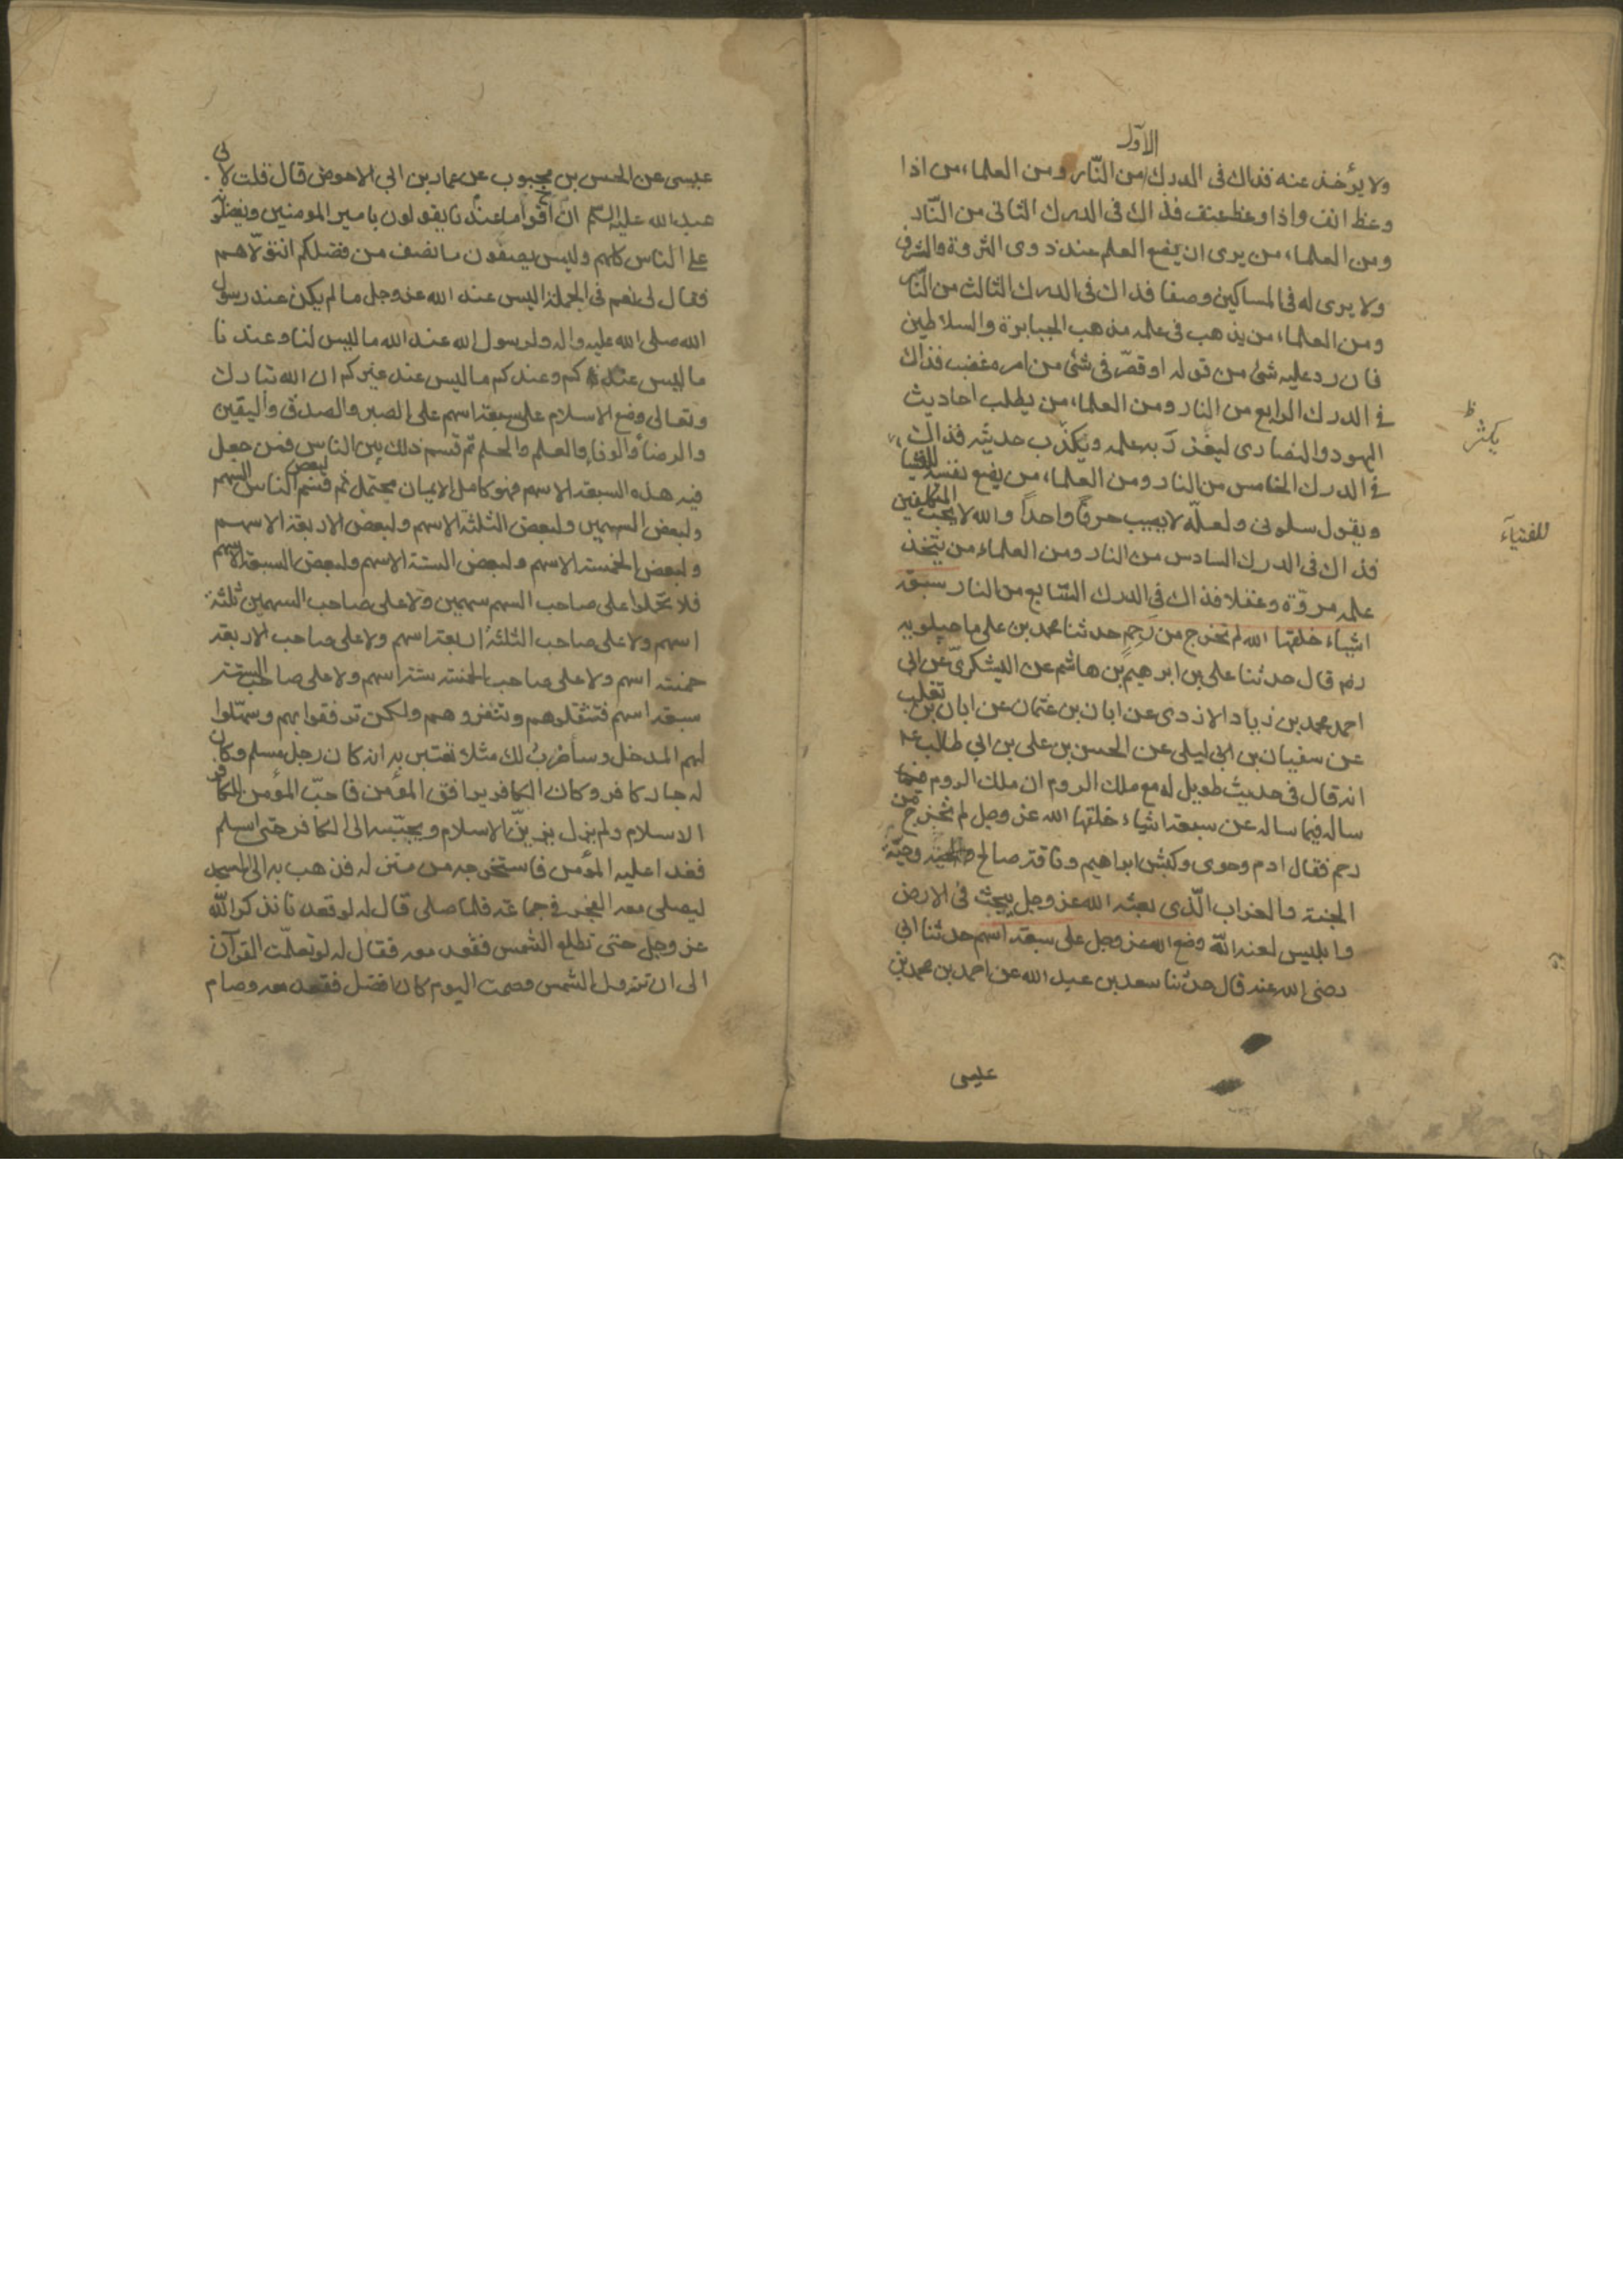 الاول
ولا يؤخذ عنه فذاك فى الدرك من النّار ومن العلماء من اذا
وعظ انف واذا وعظ عنف فذاك فى الدرك الثانى من النّار
ومن العلماء من يرى ان يضع العلم عند ذوى الثروة والشرف
ولا يرى له فى المساكين وضعا فذاك فى الدرك الثالث من النّار
ومن العلماء من يذهب فى علمه مذهب الجبابرة والسلاطين
فان رد عليه شئ من قوله او قصّر فى شئ من امره غضب فذاك
فى الدرك الرابع من النار ومن العلماء من يطلب احاديث
اليهود والنصارى ليغزر به علمه ويكذّب حديثه فذاك
يكثر ظ
فى الدرك الخامس من النار ومن العلماء من يضع نفسه للفتيا
ويقول سلونى ولعلّه لا يصيب حرفا واحداً والله لا يحب المتكلفين
للفتياء
فذاك فى الدرك السادس من النار ومن العلماء من يتخذ
علمه مروّة وعقلا فذاك فى الدرك السّابع من النار سبعة
اشياء خلقها الله لم تخرج من رحمٍ حدثنا محمد بن على ماجيلويه
رضه قال حدثنا على بن ابرهيم بن هاشم عن اليشكرىّ عن ابى
احمد محمد بن زياد الازدى عن ابان بن عثمان عن ابان بن تغلب
عن سفيان بن ابى ليلى عن الحسن بن على بن ابى طالب ع
انه قال فى حديث طويل له مع ملك الروم ان ملك الروم
ساله فيما ساله عن سبعة اشياء خلقها الله عز وجل لم تخرج من
رحم فقال ادم وحوى وكبش ابراهيم وناقة صالح وحيّة
الجنة والغراب الّذى بعثه الله عز وجل يبحث فى الارض
وابليس لعنه الله وضع الله عز وجل على سبعة اسهم حدثنا ابى
رضى الله عنه قال حدثنا سعد بن عبد الله عن احمد بن محمد بن
عيسى
عيسى عن الحسن بن محبوب عن عمار بن ابى الاحوص قال قلت لابى
عبد الله عليه السلم ان اقواما عندنا يقولون بامير المومنين ويفضلونه
على الناس كلهم وليس يصفون ما نصف من فضلكم انتولاهم
فقال لى نعم فى الجملة اليس عند الله عز وجل ما لم يكن عند رسول
الله صلى الله عليه واله ولرسول الله عند الله ما ليس لنا وعندنا
ما ليس عندكم وعندكم ما ليس عند غيركم ان الله تبارك
وتعالى وضع الاسلام على سبعة اسهم على الصبر والصدق واليقين
والرضا والوفا والعلم والحلم ثم قسم ذلك بين الناس فمن جعل
فيه هذه السبعة الاسهم فهو كامل الايمان محتمل ثم قسم لبعض الناس السهم
ولبعض السهمين ولبعض الثلثة الاسهم ولبعض الاربعة الاسهم
ولبعض الخمسة الاسهم ولبعض الستة الاسهم ولبعض السبعة الاسهم
فلا تحملوا على صاحب السهم سهمين ولا على صاحب السهمين ثلثة
اسهم ولا على صاحب الثلثة اربعة اسهم ولا على صاحب الاربعة
خمسة اسهم ولا على صاحب الخمسة ستة اسهم ولا على صاحب الستة
سبعة اسهم فتثقلوهم وتنفروهم ولكن ترفقوا بهم وسهّلوا
لهم المدخل وساضرب لك مثلا تعتبر به انه كان رجل مسلم وكان
له جار كافر وكان الكافر يرافق المؤمن فاحبّ المؤمن للكافر
الاسلام ولم يزل يزيّن الاسلام ويحبّبه الى الكافر حتى اسلم
فغدا عليه المؤمن فاستخرجه من منزله فذهب به الى المسجد
ليصلى معه الفجر فى جماعة فلما صلى قال له لو قعدنا نذكر الله
عز وجل حتى تطلع الشمس فقعد معه فقال له لو تعلّمت القرآن
الى ان تزول الشمس وصمت اليوم كان افضل فقعد معه وصام